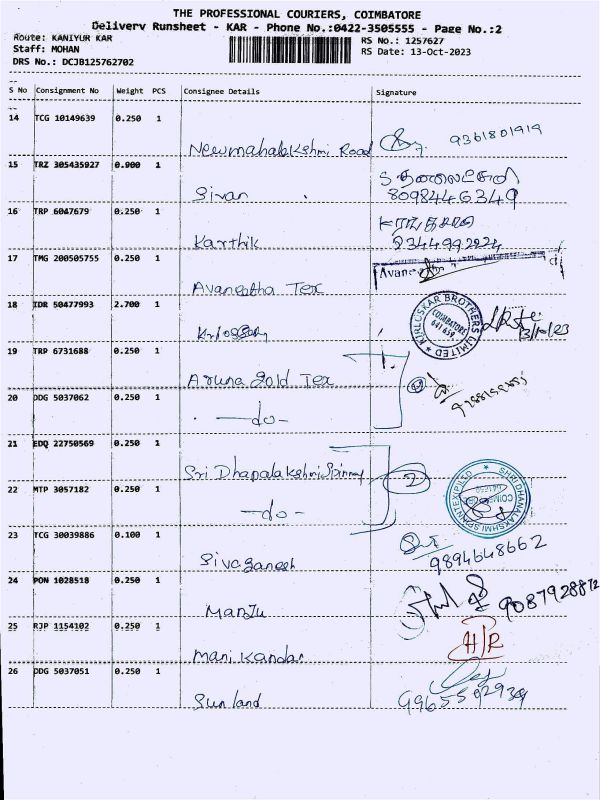 THE PROFESSIONAL COURIERS, COIMBATORE
Delivery Runsheet - KAR - Phone No.:0422-3505555 - Page No.:2
Route: KANIYUR KAR
RS No.: 1257627
Staff: MOHAN
RS Date: 13-Oct-2023
DRS No.: DCJB125762702
S No Consignment No Weight PCS Consignee Details Signature
14 TCG 10149639 0.250 1
Newmahalakshmi Road 9361801919
15 TRZ 305435927 0.900 1
Sivan 8098446349
16 TRP 6047679 0.250 1
Karthik 9344992224
17 TMG 200505755 0.250 1
Avaneetha Tex
18 IDR 50477993 2.700 1
KIRLOSKAR BROTHERS LIMITED
COIMBATORE
641 659.
19 TRP 6731688 0.250 1
Aruna gold Tex
20 DDG 5037062 0.250 1
-do-
21 EDQ 22750569 0.250 1
Sri Dhanalakshmi Spinney
22 MTP 3057182 0.250 1
2
-do-
SHRI DHANALAKSHMI SPINTEX
23 TCG 30039886 0.100 1
Sivaganesh 9894648662
24 PON 1028518 0.250 1
Manju 9087928872
25 RJP 1154102 0.250 1
Manikandan
26 DDG 5037051 0.250 1
Sunland 9965592939